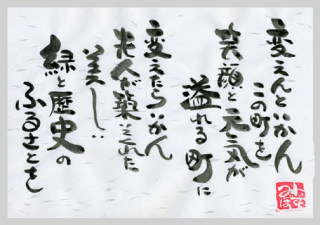 変えんといかん
この町を
笑顔と元気が
溢れる町に
変えたらいかん
先人が築いてくれた
美しい
緑と歴史の
ふるさとを